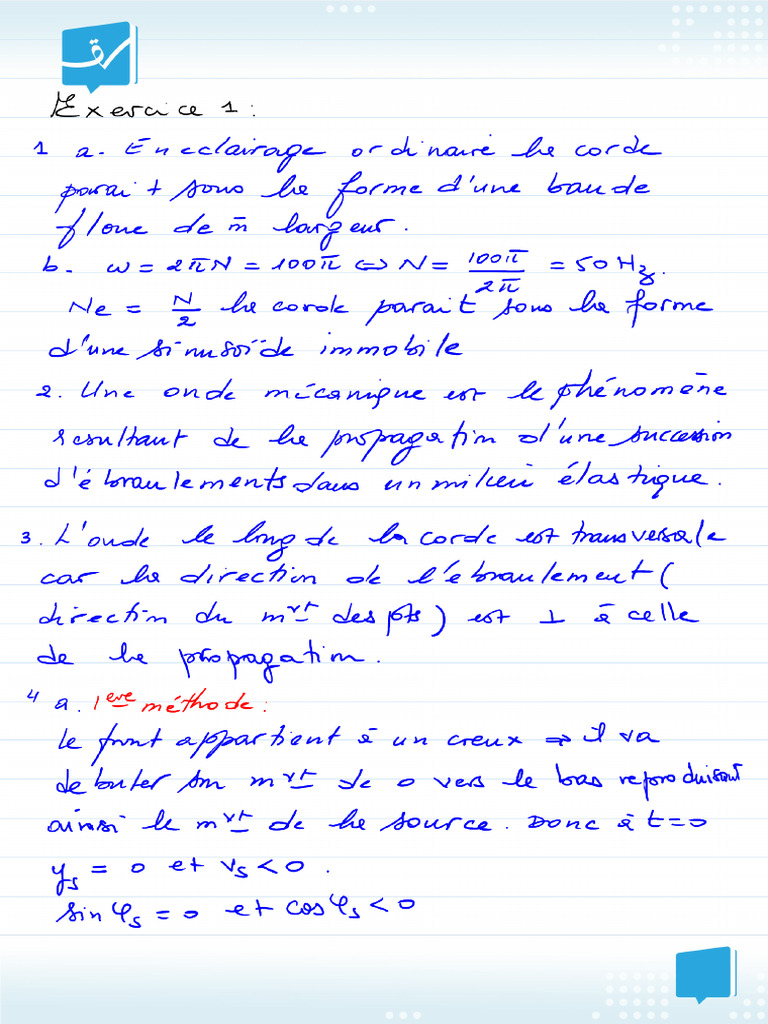 Exercice 1 :
1 a. En eclairage ordinaire la corde
parait sous la forme d'une bande
floue de m̄ largeur.
b. ω = 2πN = 100π ⇔ N = 100π/2π = 50 Hz.
Ne = N/2 la corde parait sous la forme
d'une sinusoïde immobile
2. Une onde mécanique est le phénomène
resultant de la propagation d'une succession
d'ébranlements dans un milieu élastique.
3. L'onde le long de la corde est transversale
car la direction de l'ébranlement (
direction du mvt des pts) est ⊥ à celle
de la propagation.
4 a. 1ere méthode :
le front appartient à un creux ⇒ il va
debuter son mvt de 0 vers le bas reproduisant
ainsi le mvt de la source. Donc à t=0
ys = 0 et vs < 0.
sin φs = 0 et cos φs < 0